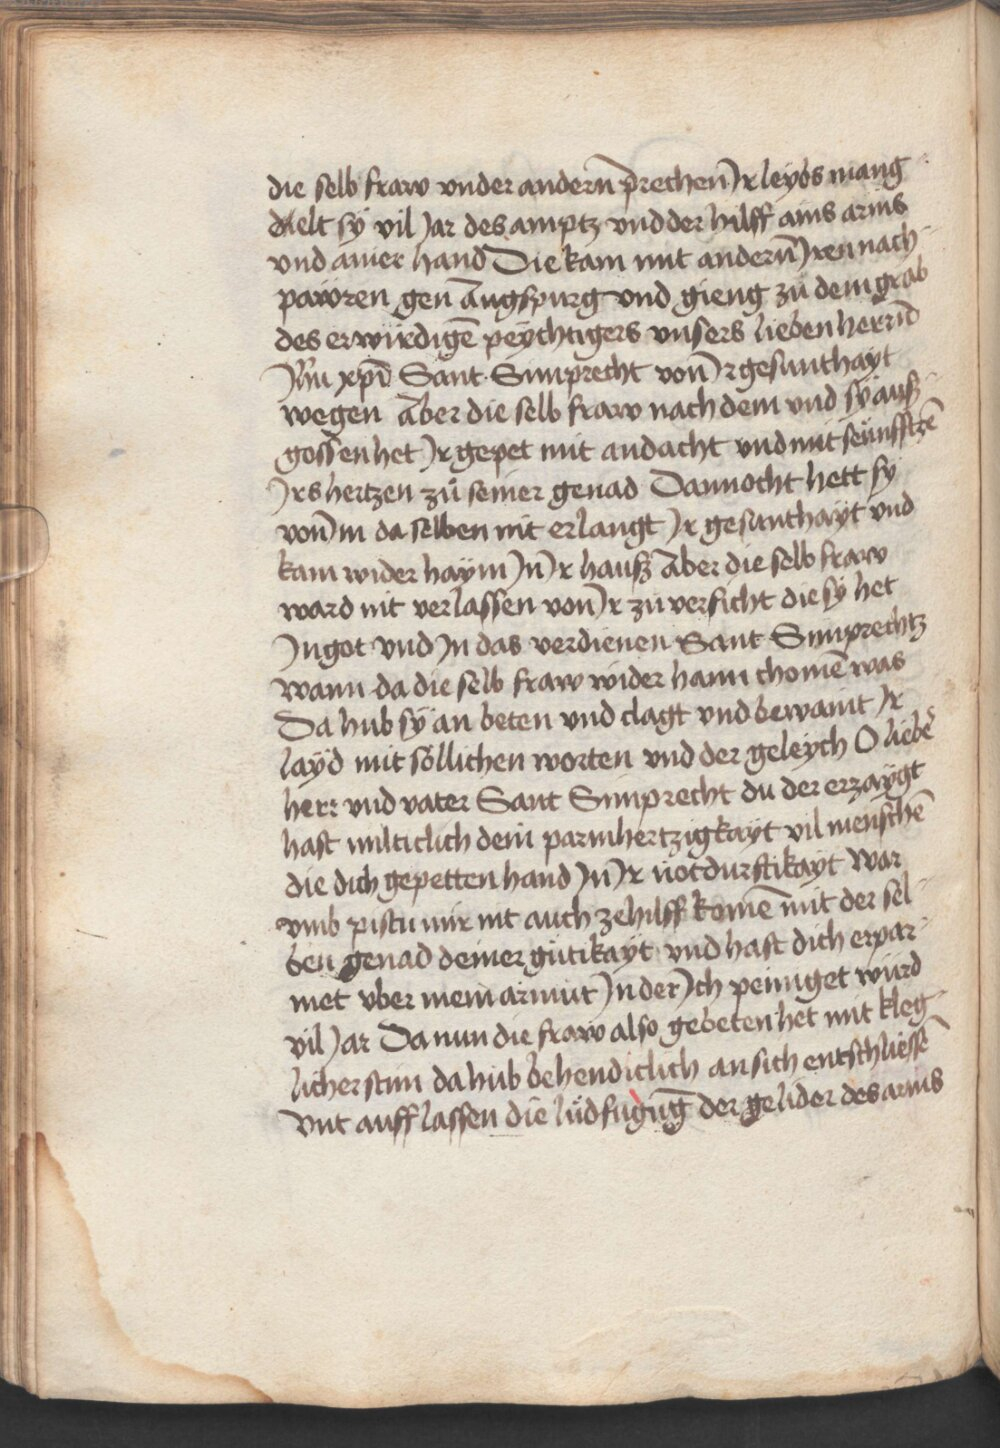 die selb fraw vnder andern prechen Jr leybs mang
delt sy vil Jar des amptz vnd der hilff ains arms
vnd ainer hand Die kam mit andern̄ Jren nach
pawren gen Augspurg vnd gieng zu dem grab
des erwirdigē peychtigers vnsers lieben herrn̄
Jh̄u xp̄i Sant Simprecht von Jr gesunthayt
wegen Aber die selb fraw nach dem vnd sy auß
gossen het Jr gepet mit andacht vnd mit seünfftzē
Jrs hertzen zů seiner genad Dannocht hett sy
von Jm da selben nit erlangt Jr gesunthayt vnd
kam wider haym Jn Jr hauß Aber die selb fraw
ward nit verlassen von Jr zu versicht die sy het
Jn got vnd Jn das verdienen Sant Simprechtz
wann da die selb fraw wider haim chomē was
Da hub sy an beten vnd clagt vnd bewaint Jr
layd mit söllichen worten vnd der geleych O liebē
herr vnd vater Sant Simprecht du der erzaygt
hast milticlich dein parmhertzigkayt vil menschē
die dich gepetten hand Jn Jr notdurftikayt War
vmb pistu mir nit auch zehilff komē mit der sel
ben genad deiner gütikayt vnd hast dich erpar
met vber mein armut Jn der Jch peiniget würd
vil Jar Da nun die fraw also gebeten het mit kleg
licher stim da hub behendiclich an sich entschliessē
vnt auff lassen die lůdfugūg der gelider des arms